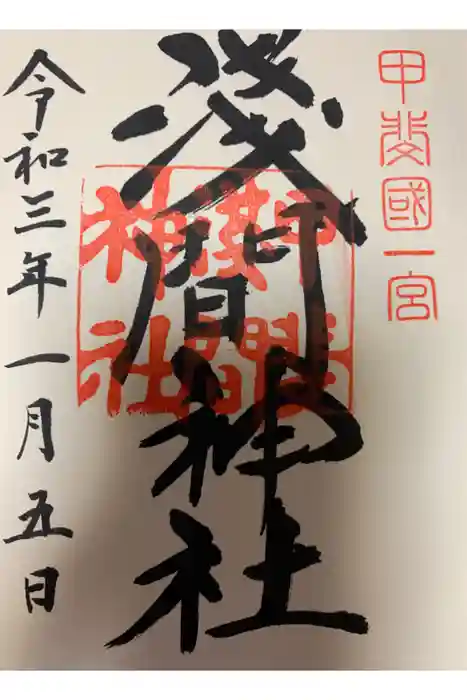 甲斐國一宮
淺間神社
令和三年一月五日